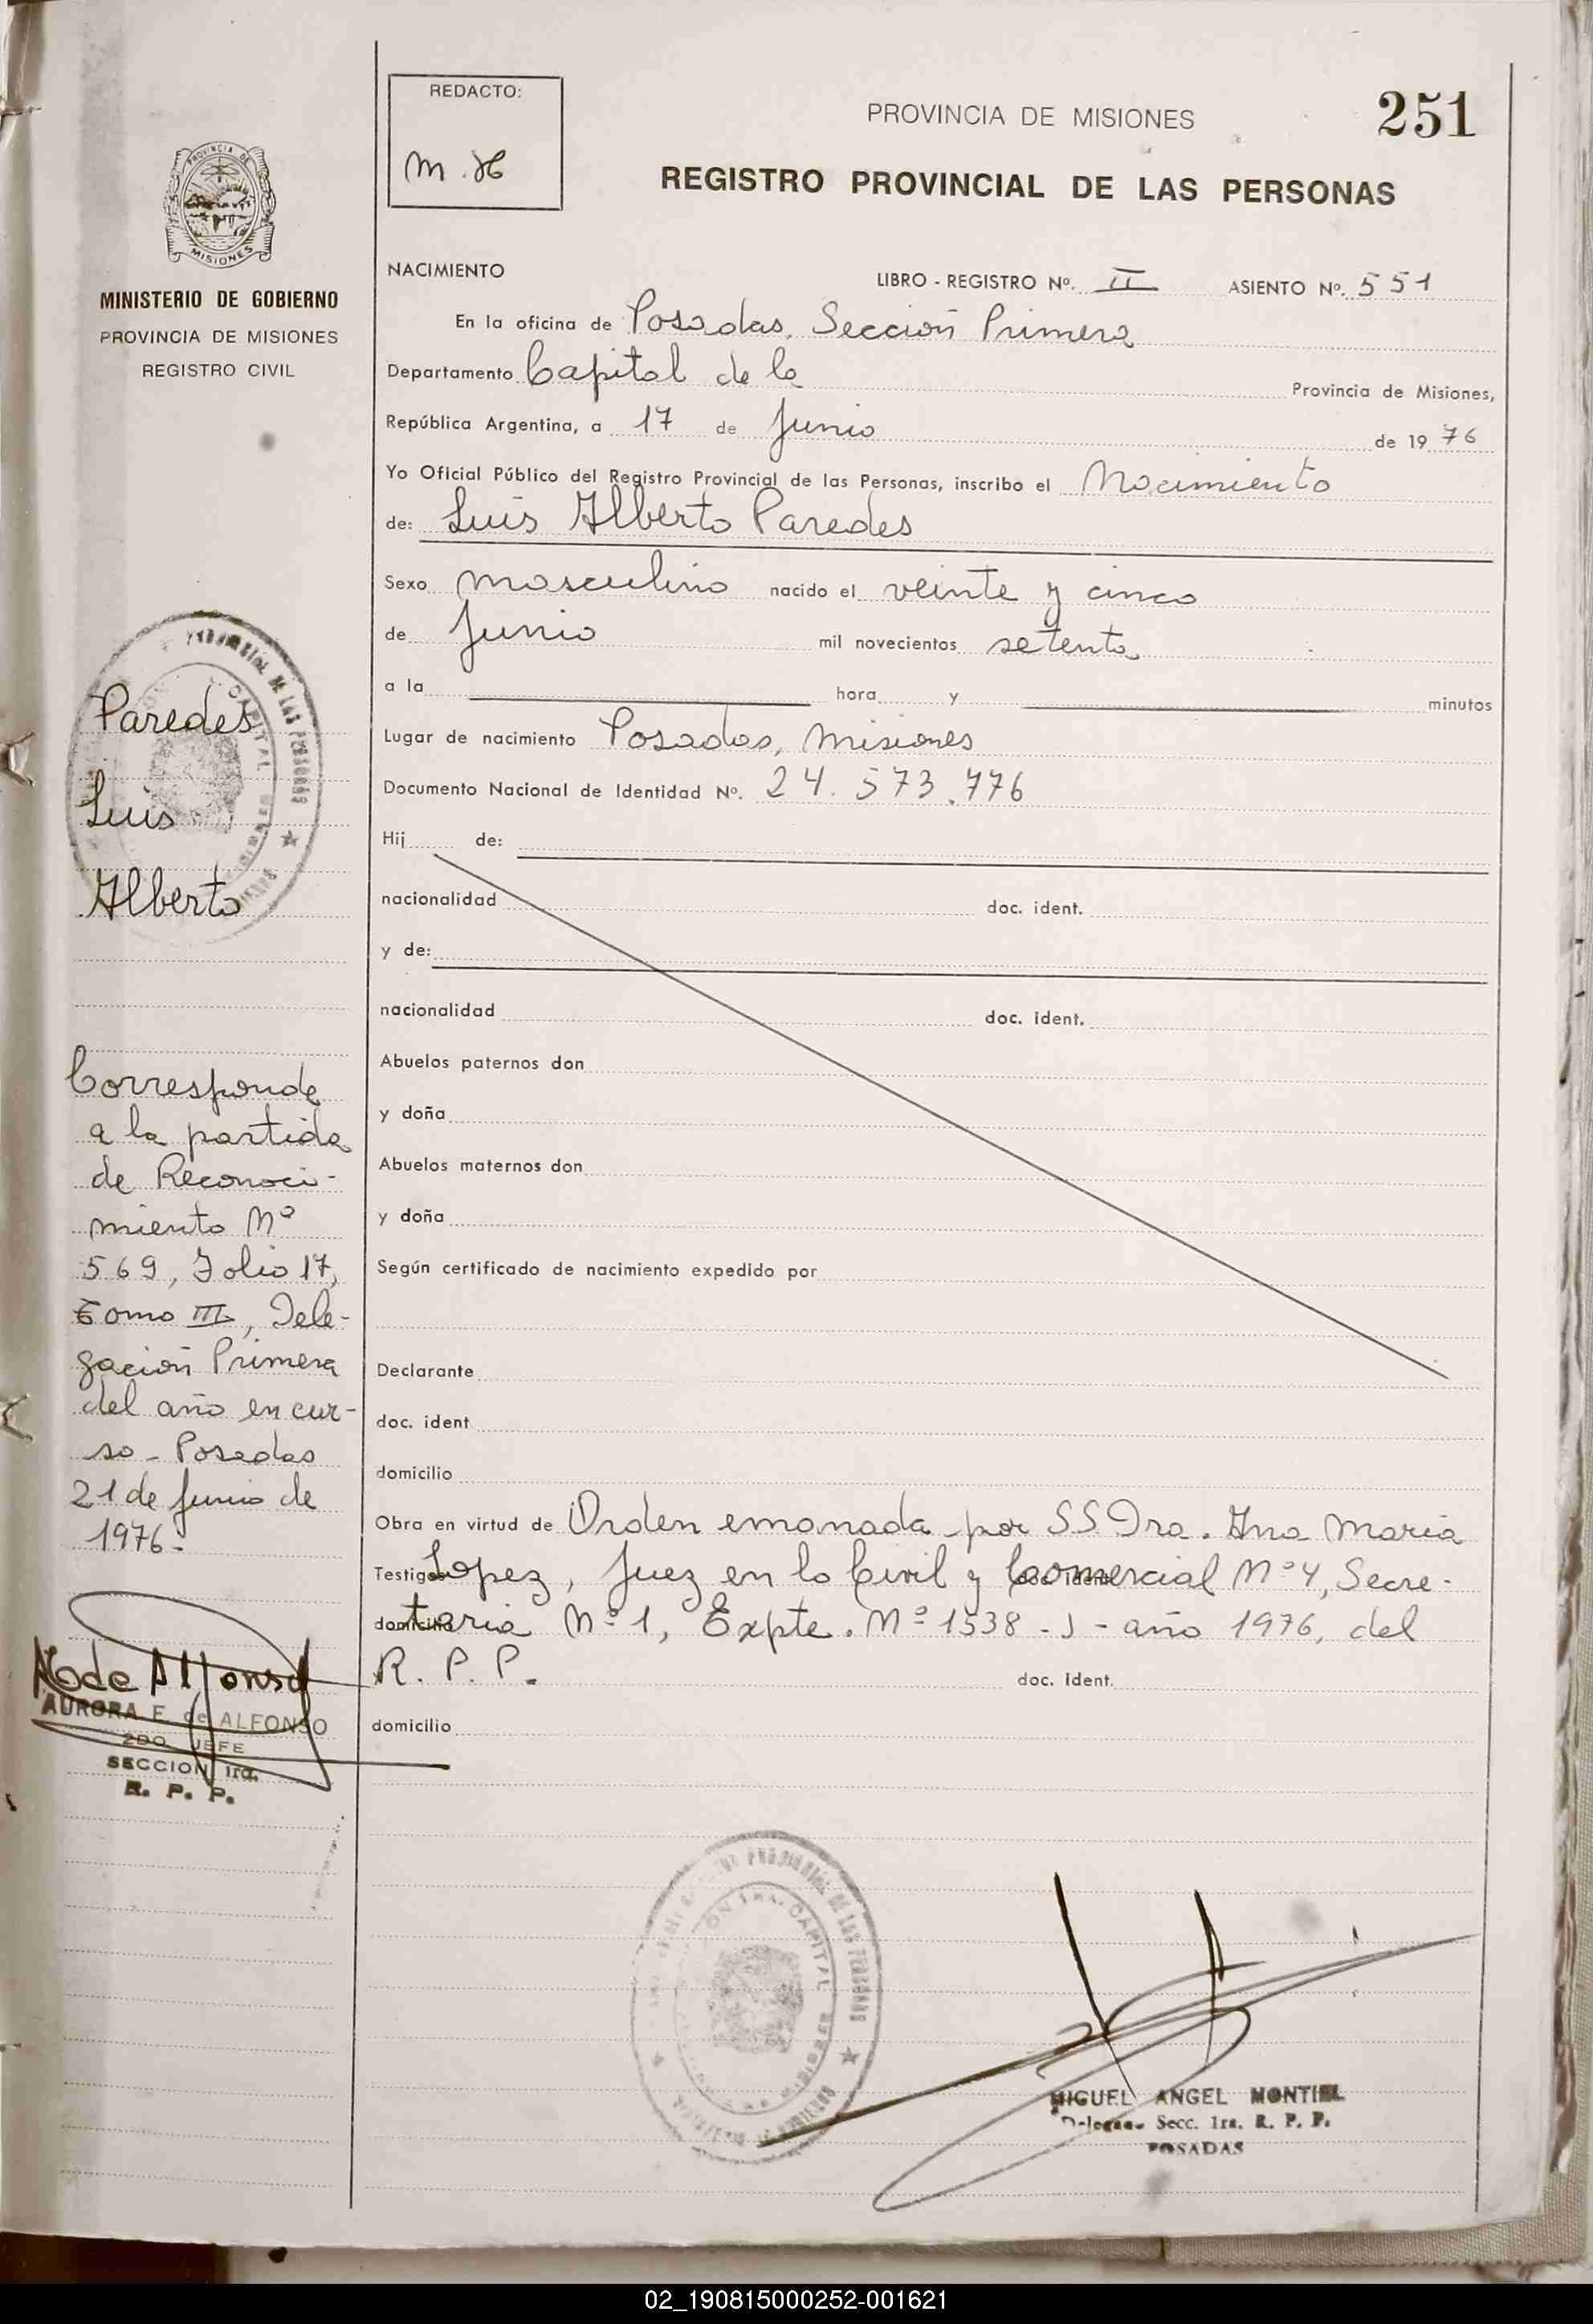 REDACTO:
M.H
PROVINCIA DE MISIONES
251
REGISTRO PROVINCIAL DE LAS PERSONAS
PROVINCIA DE
MISIONES
MINISTERIO DE GOBIERNO
PROVINCIA DE MISIONES
REGISTRO CIVIL
NACIMIENTO
LIBRO - REGISTRO Nº. II ASIENTO Nº. 551
En la oficina de Posadas, Sección Primera
Departamento Capital de la Provincia de Misiones,
República Argentina, a 17 de Junio de 1976
Yo Oficial Público del Registro Provincial de las Personas, inscribo el Nacimiento
de: Luis Alberto Paredes
Sexo masculino nacido el veinte y cinco
de Junio mil novecientos setenta
a la hora y minutos
Lugar de nacimiento Posadas, Misiones
Documento Nacional de Identidad Nº. 24.573.776
Hij de:
nacionalidad doc. ident.
y de:
nacionalidad doc. ident.
Abuelos paternos don
y doña
Abuelos maternos don
y doña
Según certificado de nacimiento expedido por
Declarante
doc. ident
domicilio
Obra en virtud de Orden emanada por S.S. Dra. Ana Maria
Testigos Lopez, Juez en lo Civil y Comercial Nº 4, Secre-
domicilio taria Nº 1, Expte. Nº 1538 - J - año 1976, del
R. P. P. doc. ident.
domicilio
Paredes
Luis
Alberto
Corresponde
a la partida
de Reconoci-
miento Nº
569, Folio 17,
Tomo III, Dele-
gación Primera
del año en cur-
so - Posadas
21 de Junio de
1976.-
AURORA F. de ALFONSO
2DO. JEFE
SECCION 1ra.
R. P. P.
MIGUEL ANGEL MONTIEL
Secc. 1ra. R. P. P.
POSADAS
02_190815000252-001621